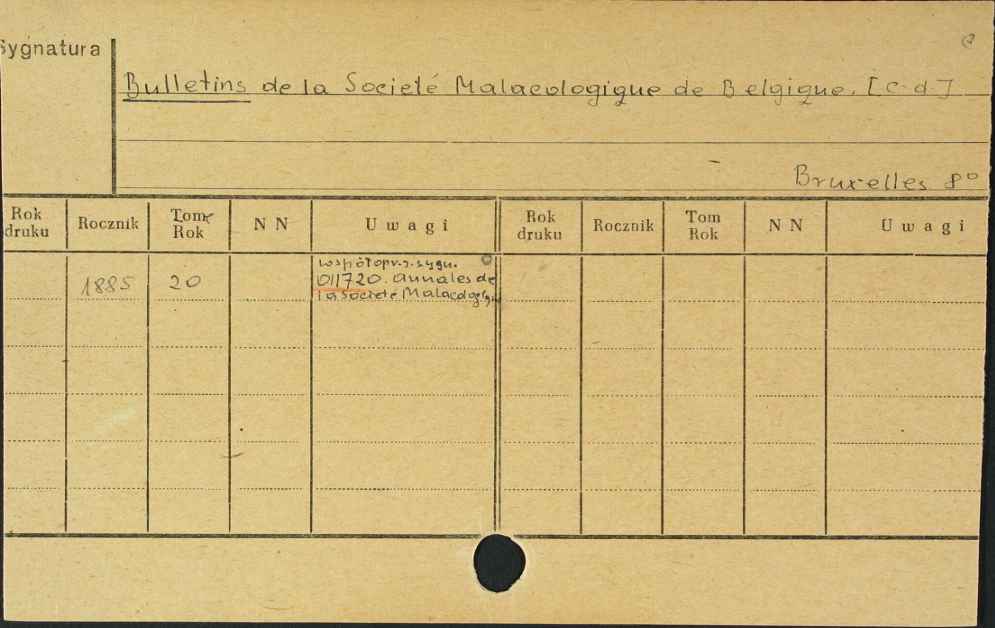 Sygnatura
Bulletins de la Societé Malacologique de Belgique. [c.d.]
Bruxelles 8°
Rok druku Rocznik Tom Rok NN Uwagi Rok druku Rocznik Tom Rok NN Uwagi
1885 20 współopr. z sygn.
011720. Annales de
la Societé Malacologique